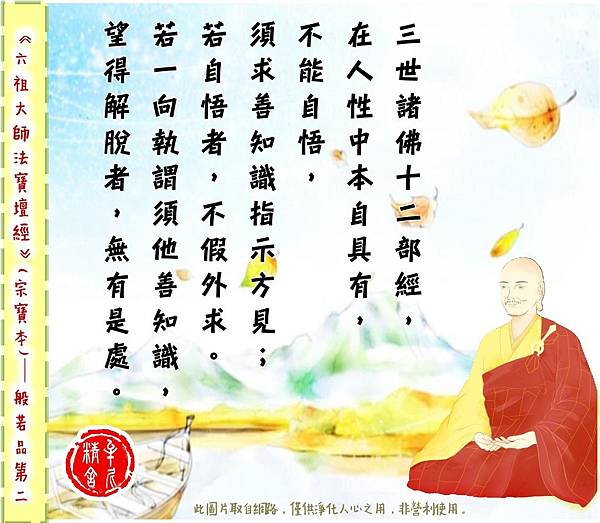 三世諸佛十二部經，
在人性中本自具有，
不能自悟，
須求善知識指示方見；
若自悟者，不假外求。
若一向執謂須他善知識，
望得解脫者，無有是處。
《六祖大師法寶壇經》（宗寶本）—般若品第二
精舍
此圖片取自網路，僅供淨化人心之用，非營利使用。